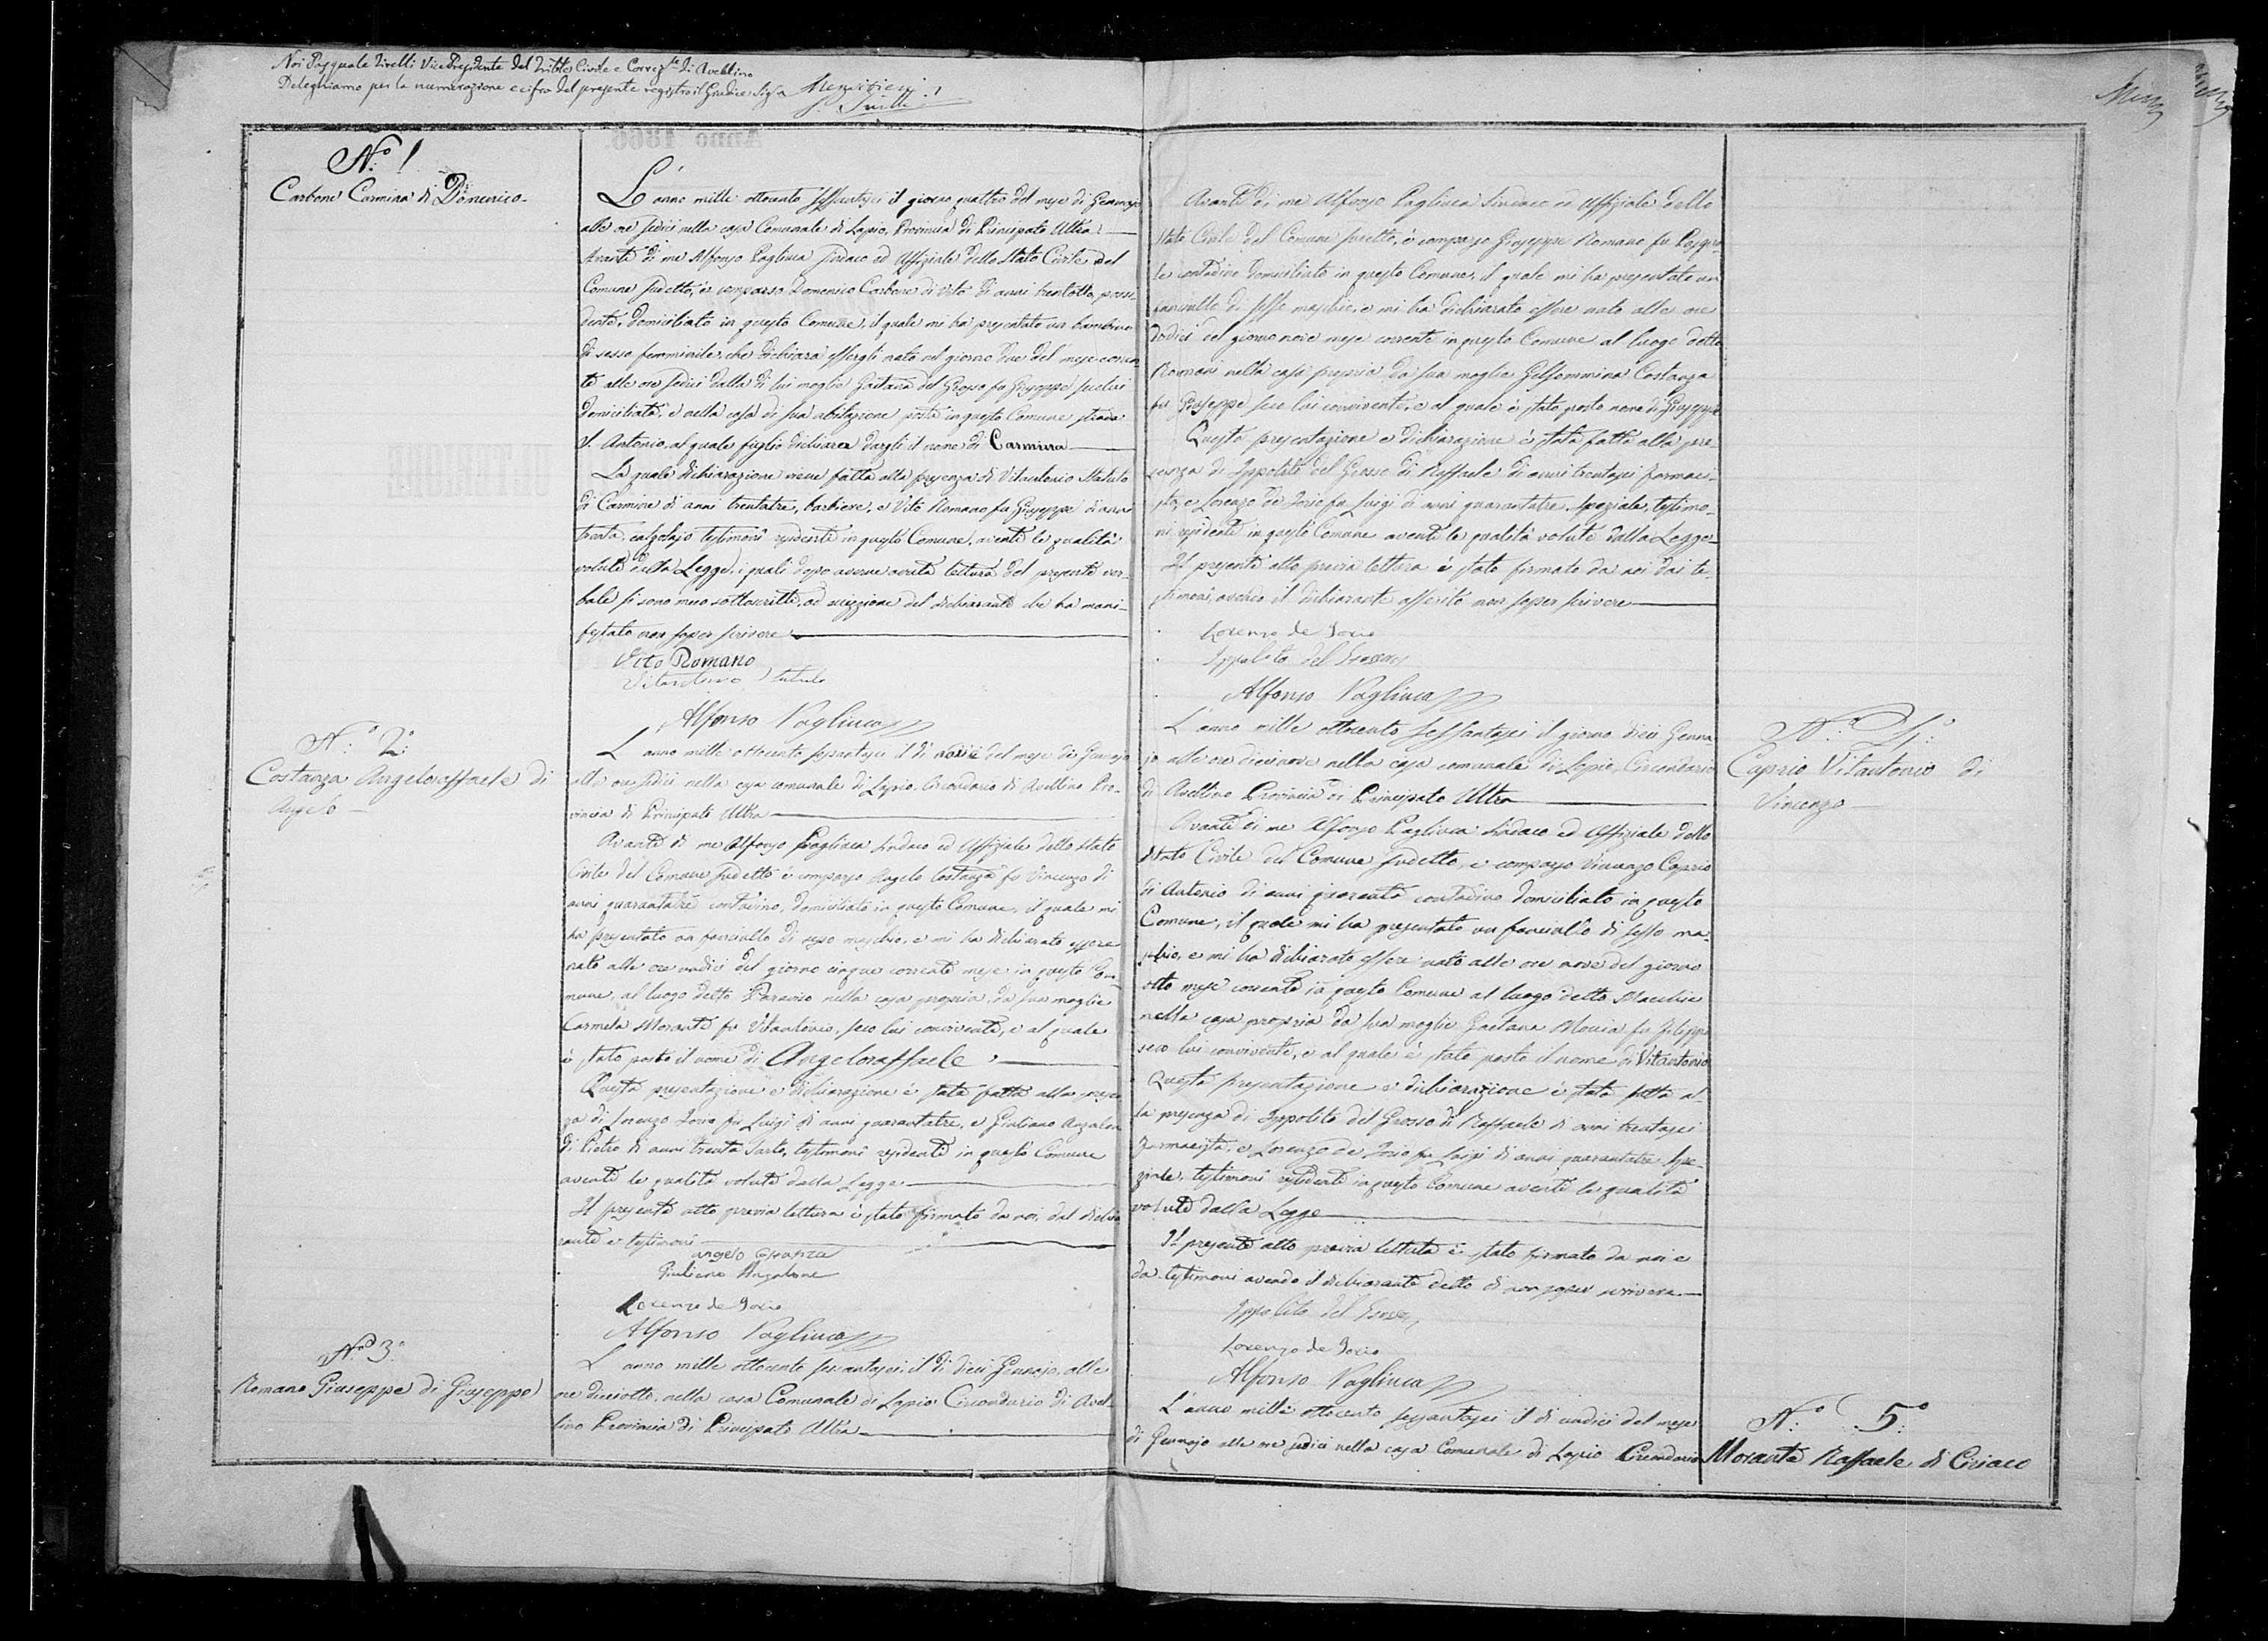 Noi Pasquale Tirelli Vice Presidente del Trible Civile e Correzle di Avellino
Deleghiamo per la numerazione e cifra del presente registro il Giudice Sigr
N.º 1
Carbone Carmina di Domenico
L'anno mille ottocento sessantasei il giorno quattro del mese di Gennajo
alle ore sedici nella casa Comunale di Lapio, Provincia di Principato Ultra
Avanti di me Alfonso Pagliuca Sindaco ed Uffiziale dello Stato Civile del
Comune sudetto, è comparso Domenico Carbone di Vito di anni trentotto, possi-
dente, domiciliato in questo Comune, il quale mi ha presentato un bambino
di sesso femminile, che dichiara essergli nato nel giorno due del mese corren-
te alle ore sedici dalla di lui moglie Gaetana del Grosso fu Giuseppe seclui
domiciliata, e nella casa di sua abitazione posta in questo Comune strada
S. Antonio, al quale figlio dichiara dargli il nome di Carmina
La quale dichiarazione viene fatta alla presenza di Vitantonio Statuto
di Carmine di anni trentatre, barbiere, e Vito Romano fu Giuseppe di anni
trenta, calzolajo testimoni residenti in questo Comune, aventi le qualità
volute dalla Legge, i quali dopo averne avuta lettura del presente ver-
bale si sono meco sottoscritti, ad eccezione del dichiarante che ha mani-
festato non saper scrivere
Vito Romano
Vitantonio Statuto
Alfonso Pagliuca
N.º 2º
Costanza Angeloraffaele di
Angelo
L'anno mille ottocento sessantasei il dì nove del mese di Gennajo
alle ore sedici nella casa comunale di Lapio, Circondario di Avellino Pro-
vincia di Principato Ultra
Avanti di me Alfonso Pagliuca Sindaco ed Uffiziale dello Stato
Civile del Comune sudetto è comparso Angelo Costanza fu Vincenzo di
anni quarantatrè contadino, domiciliato in questo Comune, il quale mi
ha presentato un fanciullo di sesso maschio, e mi ha dichiarato essere
nato alle ore undici del giorno cinque corrente mese in questo Co-
mune, al luogo detto Paraviso nella casa propria, da sua moglie
Carmela Morante fu Vitantonio, seco lui convivente, e al quale
è stato posto il nome di Angeloraffaele
Questa presentazione e dichiarazione è stata fatta alla presen
za di Lorenzo Iorio fu Luigi di anni quarantatre, e Giuliano Anzalone
di Pietro di anni trenta Sarto, testimoni residenti in questo Comune
aventi le qualità volute dalla Legge
Il presente atto previa lettura è stato firmato da noi, dal dichia
rante e testimoni
angelo Costanza
Giuliano Anzalone
Lorenzo de Iorio
Alfonso Pagliuca
N.º 3º
Romano Giuseppe di Giuseppe
L'anno mille ottocento sessantasei, il dì dieci Gennajo, alle
ore dieciotto, nella casa Comunale di Lapio Circondario di Avel-
lino Provincia di Principato Ultra
Avanti di me Alfonso Pagliuca Sindaco ed Uffiziale dello
Stato Civile del Comune sudetto, è comparso Giuseppe Romano fu Pasqua
le contadino domiciliato in questo Comune, il quale mi ha presentato un
fanciullo di sesso maschio, e mi ha dichiarato essere nato alle ore
dodici del giorno nove mese corrente in questo Comune al luogo detto
Romani nella casa propria da sua moglie Gelsommina Costanza
fu Giuseppe seco lui convivente, e al quale è stato posto nome di Giuseppe
Questa presentazione e dichiarazione è stata fatta alla pre
senza di Ippolito del Grosso di Raffaele di anni trentasei farmaci-
sta, e Lorenzo de Iorio fu Luigi di anni quarantatre Speziale, testimo-
ni residenti in questo Comune aventi le qualità volute dalla Legge
Il presente atto previa lettura è stato firmato da noi dai te-
stimoni, avendo il dichiarante asserito non saper scrivere
Lorenzo de Iorio
Ippolito del Grosso
Alfonso Pagliuca
N.º 4º
Caprio Vitantonio di
Vincenzo
L'anno mille ottocento sessantasei il giorno dieci Genna
jo alle ore diecinove nella casa comunale di Lapio, Circondario
di Avellino Provincia di Principato Ultra
Avanti di me Alfonso Pagliuca Sindaco ed Uffiziale dello
Stato Civile del Comune sudetto, è comparso Vincenzo Caprio
di Antonio di anni quaranta contadino domiciliato in questo
Comune, il quale mi ha presentato un fanciullo di sesso ma-
schio, e mi ha dichiarato essere nato alle ore nove del giorno
otto mese corrente in questo Comune al luogo detto Macchie
nella casa propria da sua moglie Gaetana Monia fu Filippo
seco lui convivente, e al quale è stato posto il nome di Vitantonio
Questa presentazione e dichiarazione è stata fatta al-
la presenza di Ippolito del Grosso di Raffaele di anni trentasei
Farmacista, e Lorenzo de Iorio fu Luigi di anni quarantatre Spe-
ziale, testimoni residenti in questo Comune aventi le qualità
volute dalla Legge
Il presente atto previa lettura è stato firmato da noi e
da testimoni avendo il dichiarante detto di non saper scrivere
Ippolito del Grosso
Lorenzo de Iorio
Alfonso Pagliuca
N.º 5º
Morante Raffaele di Ciriaco
L'anno mille ottocento sessantasei il dì undici del mese
di Gennajo alle ore sedici nella casa Comunale di Lapio Circondario